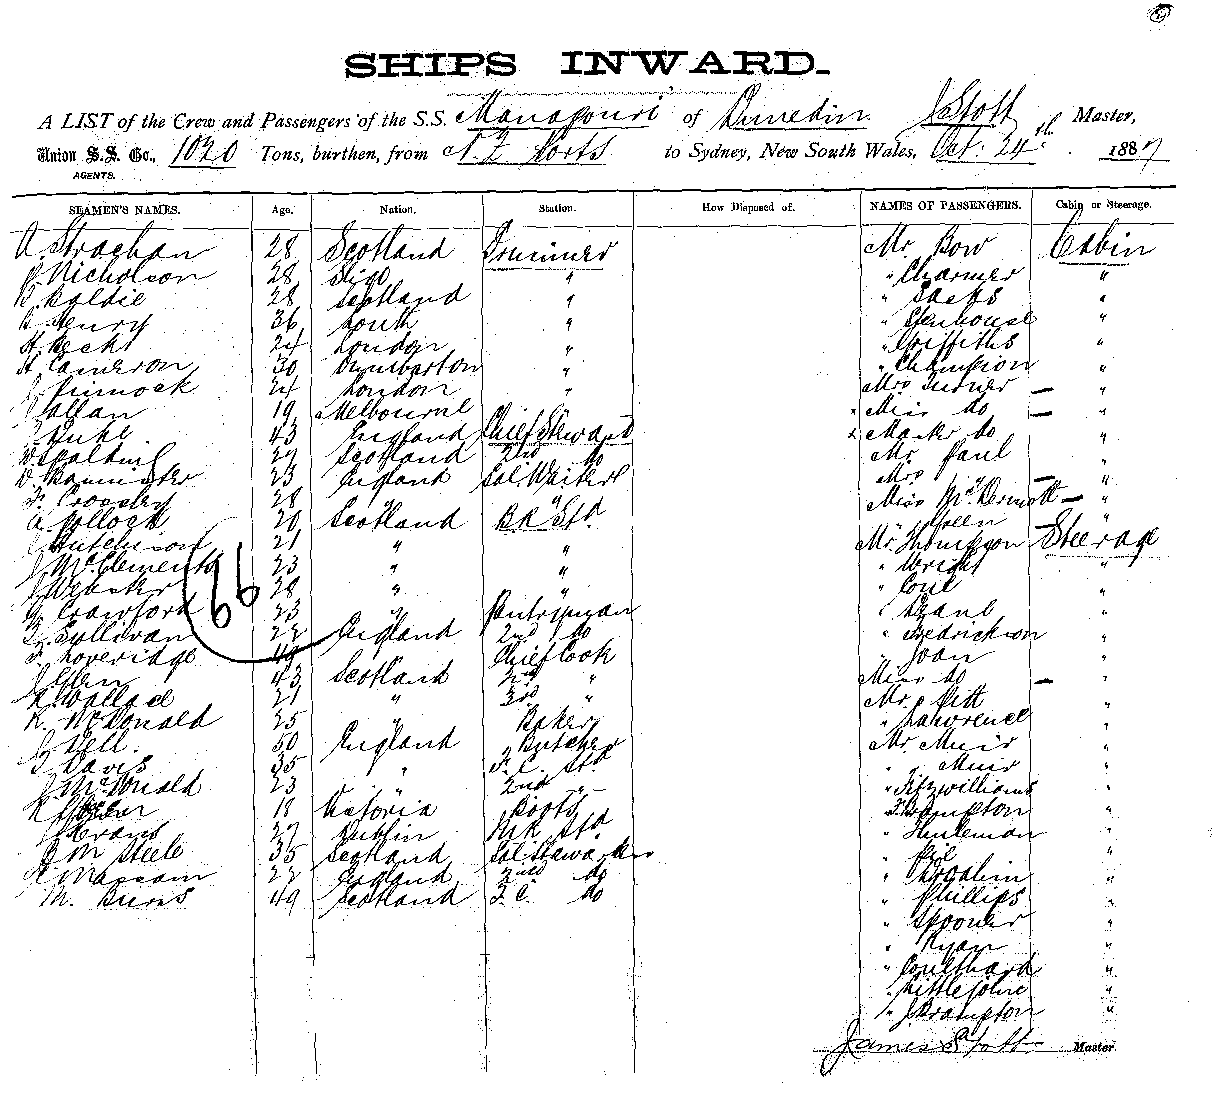 SHIPS INWARD.
A LIST of the Crew and Passengers of the S.S. Manapouri of Dunedin J Stott Master,
Union S.S. Co., 1020 Tons, burthen, from N Z Ports to Sydney, New South Wales, Oct. 24th 1887
AGENTS.
SEAMEN'S NAMES. Age. Nation. Station. How Disposed of. NAMES OF PASSENGERS. Cabin or Steerage.
A. Strachan 28 Scotland Trimmer Mr. Bow Cabin
Nicholson 28 Sligo " " Charmer "
Goldie 28 Scotland " " Sachs "
Henry 36 Louth " " Stenhouse "
H. Beck 24 London " " Griffiths "
H. Cameron 30 Dumbarton " " Champion "
Pinnock 24 London " Mrs Turner "
J Allan 19 Melbourne Miss do "
Duke 43 England Chief Steward Master do "
W Spalding 27 Scotland 2nd do Mr. Paul "
Bannister 23 England Sal Waiter Mrs "
F. Crossley 28 Miss McDermott "
A Pollock 20 Scotland BR Std Green "
Hutchison 21 " " Mr. Thompson Steerage
J McClements 23 " " " Wright "
J Webster 28 " " "
Crawford 23 " Pantryman "
Sullivan 22 England 2nd do " Fredrickson "
F. Loveridge Chief Cook " Joan "
J Glen 43 Scotland 2nd " Miss do "
Wallace 21 " 3rd " Mr. Pitt "
K. McDonald 25 " Baker " Lawrence "
J Dell. 50 England Butcher Mr. Muir "
Davis 35 " F. C. Std " Muir "
J McDonald 23 2nd " " Fitzwilliams "
18 Victoria Boots " Frampton "
J Evans 27 Dublin MR Std " Hinleman "
M Steele 35 Scotland Sal Stewardess " "
Massam 22 England 2nd do " "
M. Burns 49 Scotland F. C. do " Phillips "
" Spooner "
" Ryan "
" Coulthard "
" Littlejohn "
" J. Brampton "
66
James Stott Master